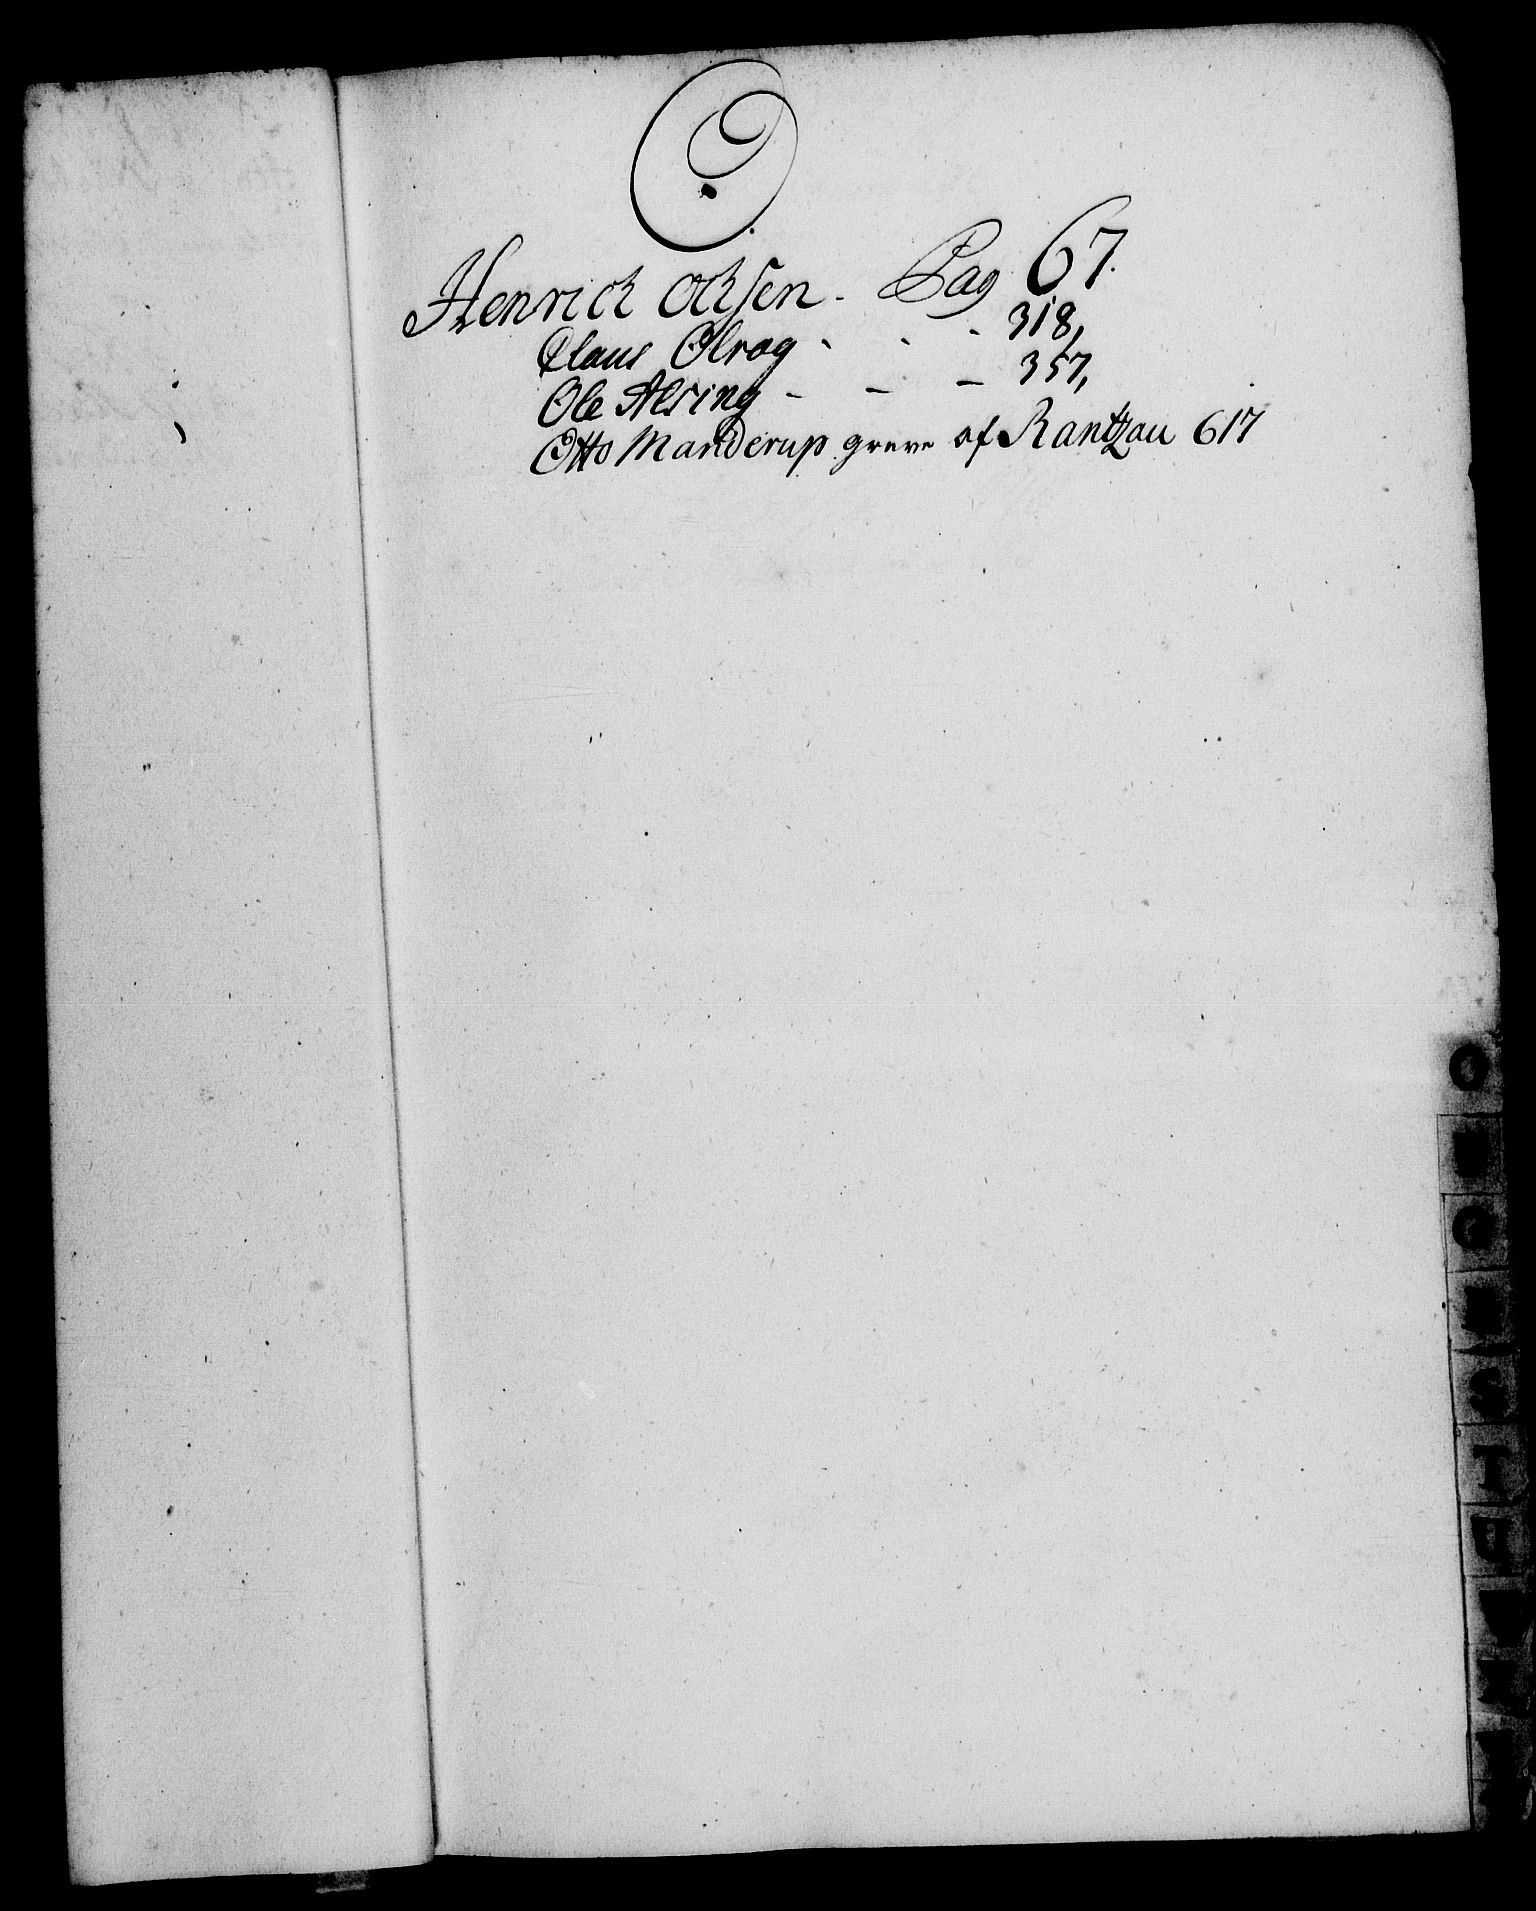 O.
Henrich Ochsen - Pag 67.
Claus Olrog - - - 318,
Ole Alring - - - 357,
Otto Manderup greve af Rantzau 617
O
Q
S
T
U